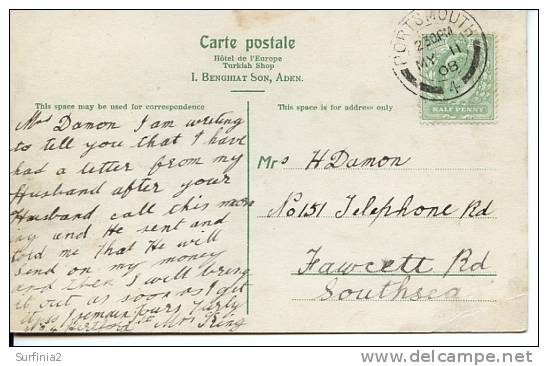 Carte postale
Hôtel de l'Europe
Turkish Shop
I. BENGHIAT SON, ADEN.
This space may be used for correspondence
This space is for address only
PORTSMOUTH
2 30 PM
MY 11
08
4
HALF PENNY
Mrs Damon I am writing
to tell you that I have
had a letter from my
Husband after your
Husband call this morn
ing and He sent and
told me that He will
send on my money
and then I will bring
it out as soon as I get
it so I remain yours Truly
Mrs King
Mrs H Damon
No 151 Telephone Rd
Fawcett Rd
Southsea
Surfinia2
delcampe.net